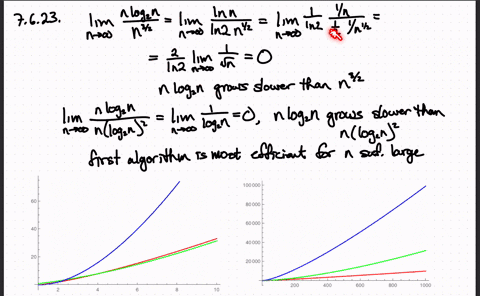 7.6.23. lim n→∞ n log₂n / n^{3/2} = lim n→∞ ln n / ln2 n^{1/2} = lim n→∞ 1/ln2 · (1/n) / (½ 1/n^{1/2}) =
= 2/ln2 lim n→∞ 1/√n = 0
n log₂n grows slower than n^{3/2}
lim n→∞ n log₂n / n(log₂n)² = lim n→∞ 1/log₂n = 0, n log₂n grows slower than
n(log₂n)²
first algorithm is most efficient for n suf. large
60
40
20
2 4 6 8 10
100 000
80 000
60 000
40 000
20 000
200 400 600 800 1000